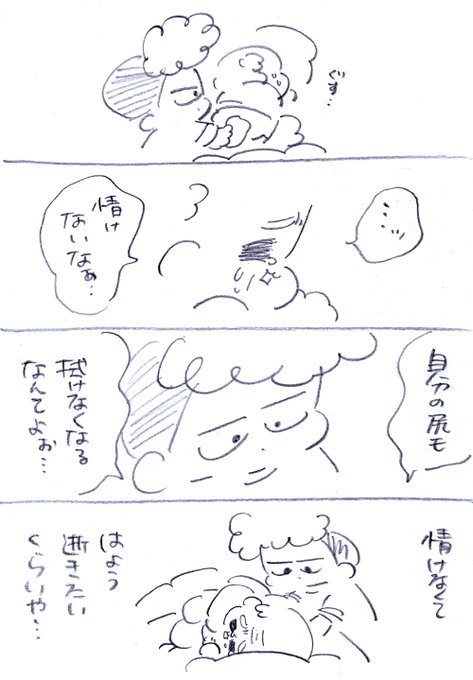 ぐす…
…
情け
ないなぁ…
自分の尻も
拭けなくなる
なんてよぉ…
情けなくて
はよう
逝きたい
くらいや…